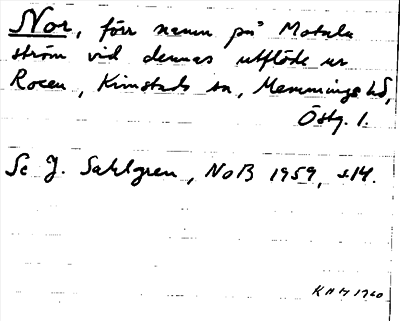 Nor, förr namn på Motala
ström vid dennas utflöde ur
Roxen, Kimstads sn, Memmings hd,
Östg. l.
Se J. Sahlgren, NoB 1959, s14.
KHH 1960